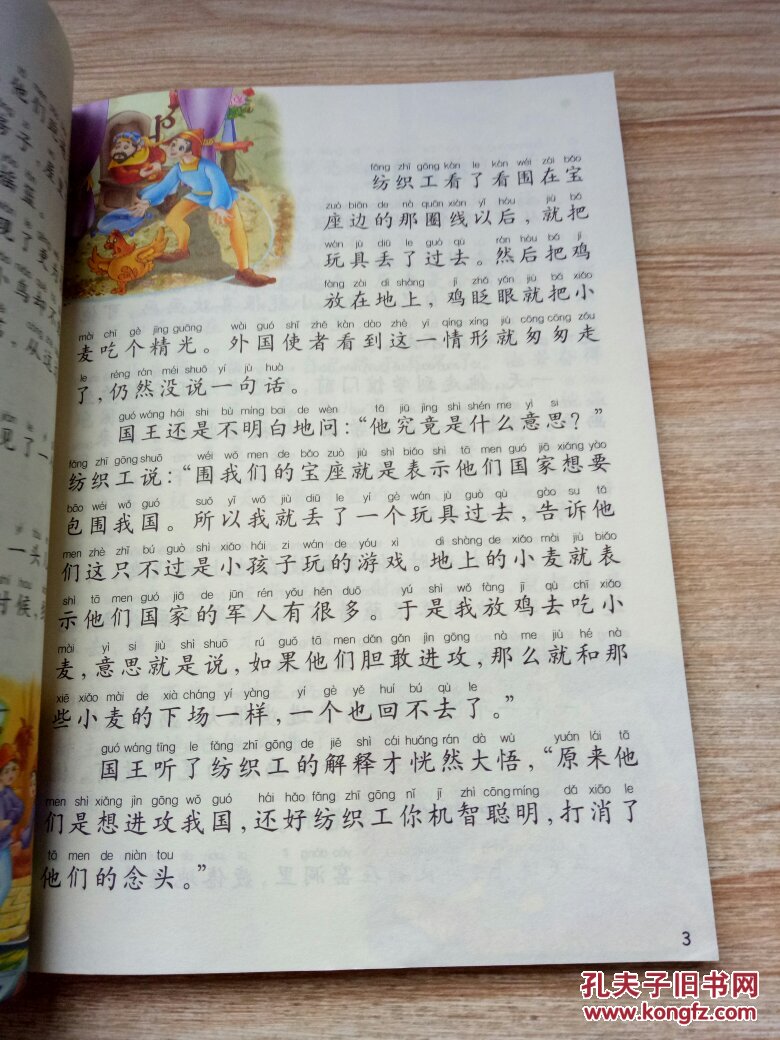 fǎng zhī gōng kàn le kàn wéi zài bǎo
纺织工看了看围在宝
zuò biān de nà quān xiàn yǐ hòu jiù bǎ
座边的那圈线以后，就把
wán jù diū le guò qù rán hòu bǎ jī
玩具丢了过去。然后把鸡
fàng zài dì shàng jī zhǎ yǎn jiù bǎ xiǎo
放在地上，鸡眨眼就把小
mài chī gè jīng guāng wài guó shǐ zhě kàn dào zhè yì qíng xíng jiù cōng cōng zǒu
麦吃个精光。外国使者看到这一情形就匆匆走
le réng rán méi shuō yí jù huà
了，仍然没说一句话。
guó wáng hái shi bù míng bai de wèn tā jiū jìng shì shén me yì si
国王还是不明白地问：“他究竟是什么意思？”
fǎng zhī gōng shuō wéi wǒ men de bǎo zuò jiù shì biǎo shì tā men guó jiā xiǎng yào
纺织工说：“围我们的宝座就是表示他们国家想要
bāo wéi wǒ guó suǒ yǐ wǒ jiù diū le yí gè wán jù guò qù gào su tā
包围我国。所以我就丢了一个玩具过去，告诉他
men zhè zhǐ bú guò shì xiǎo hái zi wán de yóu xì dì shàng de xiǎo mài jiù biǎo
们这只不过是小孩子玩的游戏。地上的小麦就表
shì tā men guó jiā de jūn rén yǒu hěn duō yú shì wǒ fàng jī qù chī xiǎo
示他们国家的军人有很多。于是我放鸡去吃小
mài yì si jiù shì shuō rú guǒ tā men dǎn gǎn jìn gōng nà me jiù hé nà
麦，意思就是说，如果他们胆敢进攻，那么就和那
xiē xiǎo mài de xià chǎng yí yàng yí gè yě huí bú qù le
些小麦的下场一样，一个也回不去了。”
guó wáng tīng le fǎng zhī gōng de jiě shì cái huǎng rán dà wù yuán lái tā
国王听了纺织工的解释才恍然大悟，“原来他
men shì xiǎng jìn gōng wǒ guó hái hǎo fǎng zhī gōng nǐ jī zhì cōng míng dǎ xiāo le
们是想进攻我国，还好纺织工你机智聪明，打消了
tā men de niàn tou
他们的念头。”
3
孔夫子旧书网
www.kongfz.com